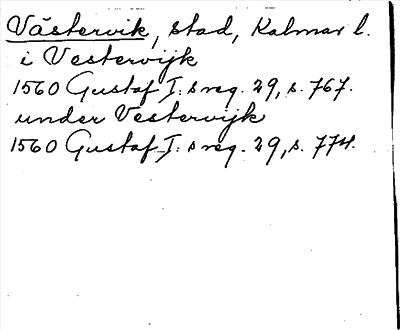 Västervik, stad, Kalmar l.
i Vesterwijk
1560 Gustaf I:s reg. 29, s. 767.
under Vesterwijk
1560 Gustaf I:s reg. 29, s. 774.